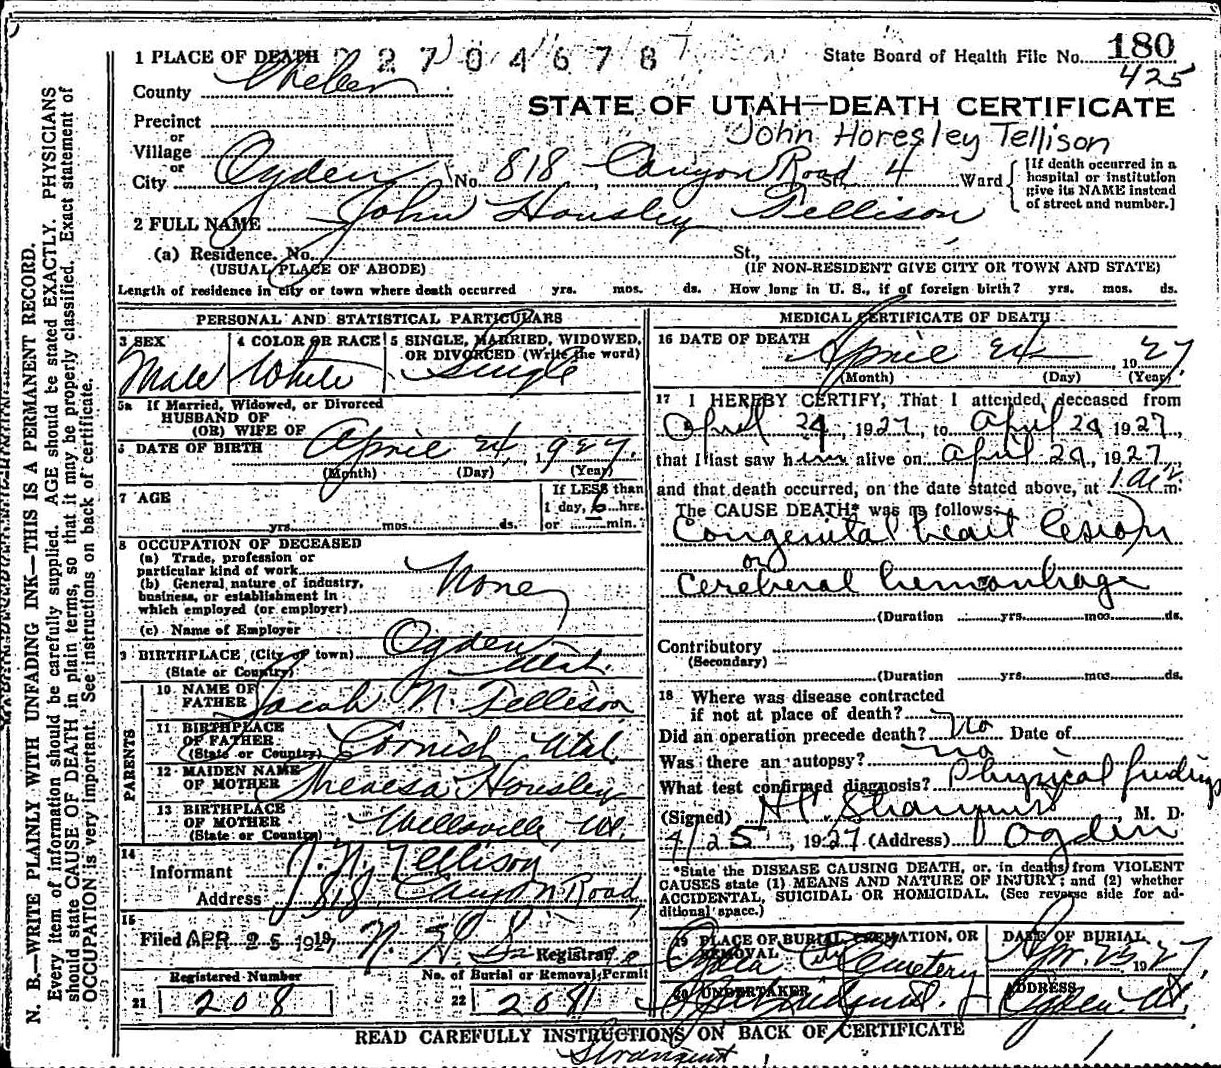 1 PLACE OF DEATH 2704678 State Board of Health File No. 180
425
County Weber
STATE OF UTAH—DEATH CERTIFICATE
Precinct
or
John Horesley Tellison
Village
or
City Ogden No. 818, Canyon Road St. 4 Ward [If death occurred in a hospital or institution give its NAME instead of street and number.]
2 FULL NAME John Housley Tellison
(a) Residence. No. St.,
(USUAL PLACE OF ABODE) (IF NON-RESIDENT GIVE CITY OR TOWN AND STATE)
Length of residence in city or town where death occurred yrs. mos. ds. How long in U. S., if of foreign birth? yrs. mos. ds.
PERSONAL AND STATISTICAL PARTICULARS
3 SEX
Male
4 COLOR OR RACE
White
5 SINGLE, MARRIED, WIDOWED,
OR DIVORCED (Write the word)
Single
5a If Married, Widowed, or Divorced
HUSBAND OF
(OR) WIFE OF
6 DATE OF BIRTH April 24, 1927.
(Month) (Day) (Year)
7 AGE
yrs. mos. ds.
If LESS than
1 day, 6 hrs.
or min.
8 OCCUPATION OF DECEASED
(a) Trade, profession or
particular kind of work None
(b) General nature of industry,
business, or establishment in
which employed (or employer)
(c) Name of Employer
9 BIRTHPLACE (City or town) Ogden
(State or Country) Utah.
PARENTS
10 NAME OF
FATHER Jacob N. Tellison
11 BIRTHPLACE
OF FATHER
(State or Country) Cornish Utah.
12 MAIDEN NAME
OF MOTHER Theresa Housley
13 BIRTHPLACE
OF MOTHER
(State or Country) Wellsville, Ut.
14
Informant J. N. Tellison
Address 818 Canyon Road,
15
Filed APR 25 1927 Registrar
Registered Number
21 208
No. of Burial or Removal Permit
22 208
MEDICAL CERTIFICATE OF DEATH
16 DATE OF DEATH
April 24 1927.
(Month) (Day) (Year)
17 I HEREBY CERTIFY, That I attended deceased from
April 24, 1927, to April 24, 1927,
that I last saw him alive on April 24, 1927,
and that death occurred, on the date stated above, at 1 a.m.
The CAUSE DEATH* was as follows:
Congenital heart lesion
or
Cerebral hemorrhage
(Duration yrs. mos. ds.
Contributory
(Secondary)
(Duration yrs. mos. ds.
18 Where was disease contracted
if not at place of death?
Did an operation precede death? no Date of
Was there an autopsy? no
What test confirmed diagnosis? Physical findings
(Signed) H. C. Stranquist, M. D.
4/25, 1927 (Address) Ogden
*State the DISEASE CAUSING DEATH, or, in deaths from VIOLENT
CAUSES state (1) MEANS AND NATURE OF INJURY; and (2) whether
ACCIDENTAL, SUICIDAL OR HOMICIDAL. (See reverse side for ad-
ditional space.)
19 PLACE OF BURIAL, CREMATION, OR
REMOVAL
Ogden City Cemetery
DATE OF BURIAL
Apr. 25, 1927.
20 UNDERTAKER
ADDRESS
Ogden Ut.
READ CAREFULLY INSTRUCTIONS ON BACK OF CERTIFICATE
Stranquist
N. B.—WRITE PLAINLY WITH UNFADING INK—THIS IS A PERMANENT RECORD.
Every item of information should be carefully supplied. AGE should be stated EXACTLY. PHYSICIANS
should state CAUSE OF DEATH in plain terms, so that it may be properly classified. Exact statement of
OCCUPATION is very important. See instructions on back of certificate.